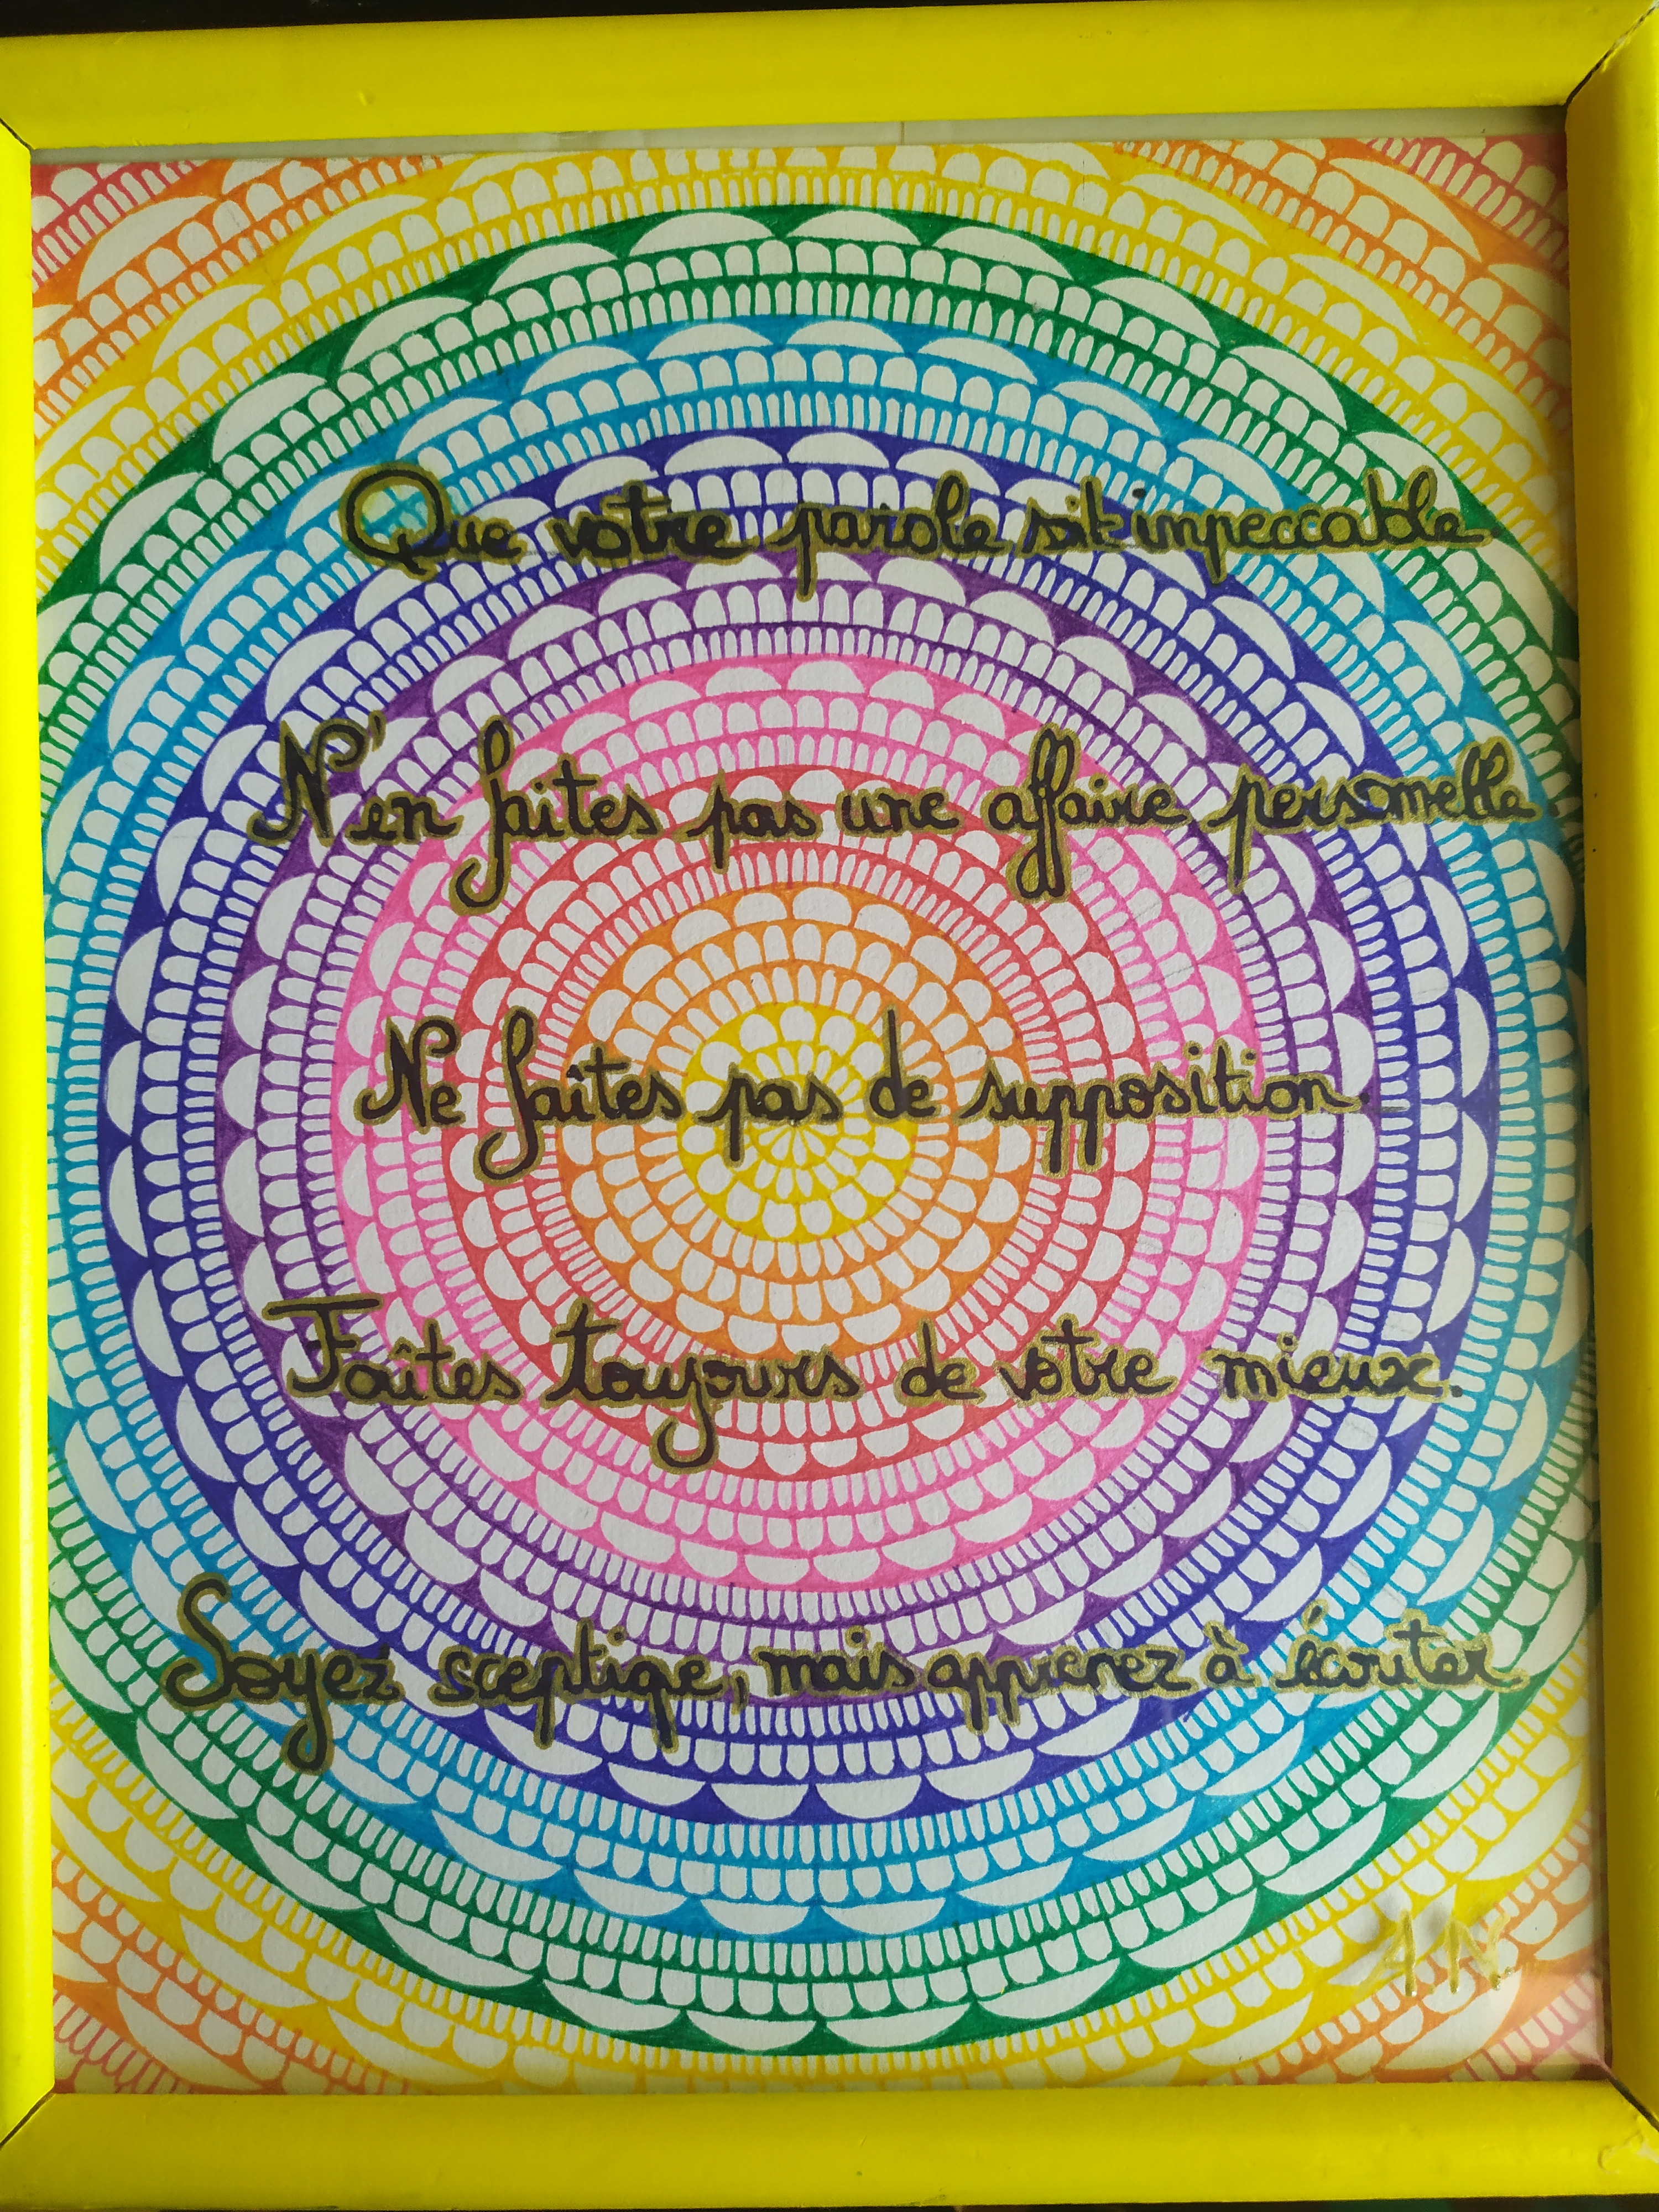 Que votre parole soit impeccable
N'en faites pas une affaire personnelle.
Ne faîtes pas de supposition.
Faîtes toujours de votre mieux.
Soyez sceptique, mais apprenez à écouter.
AN